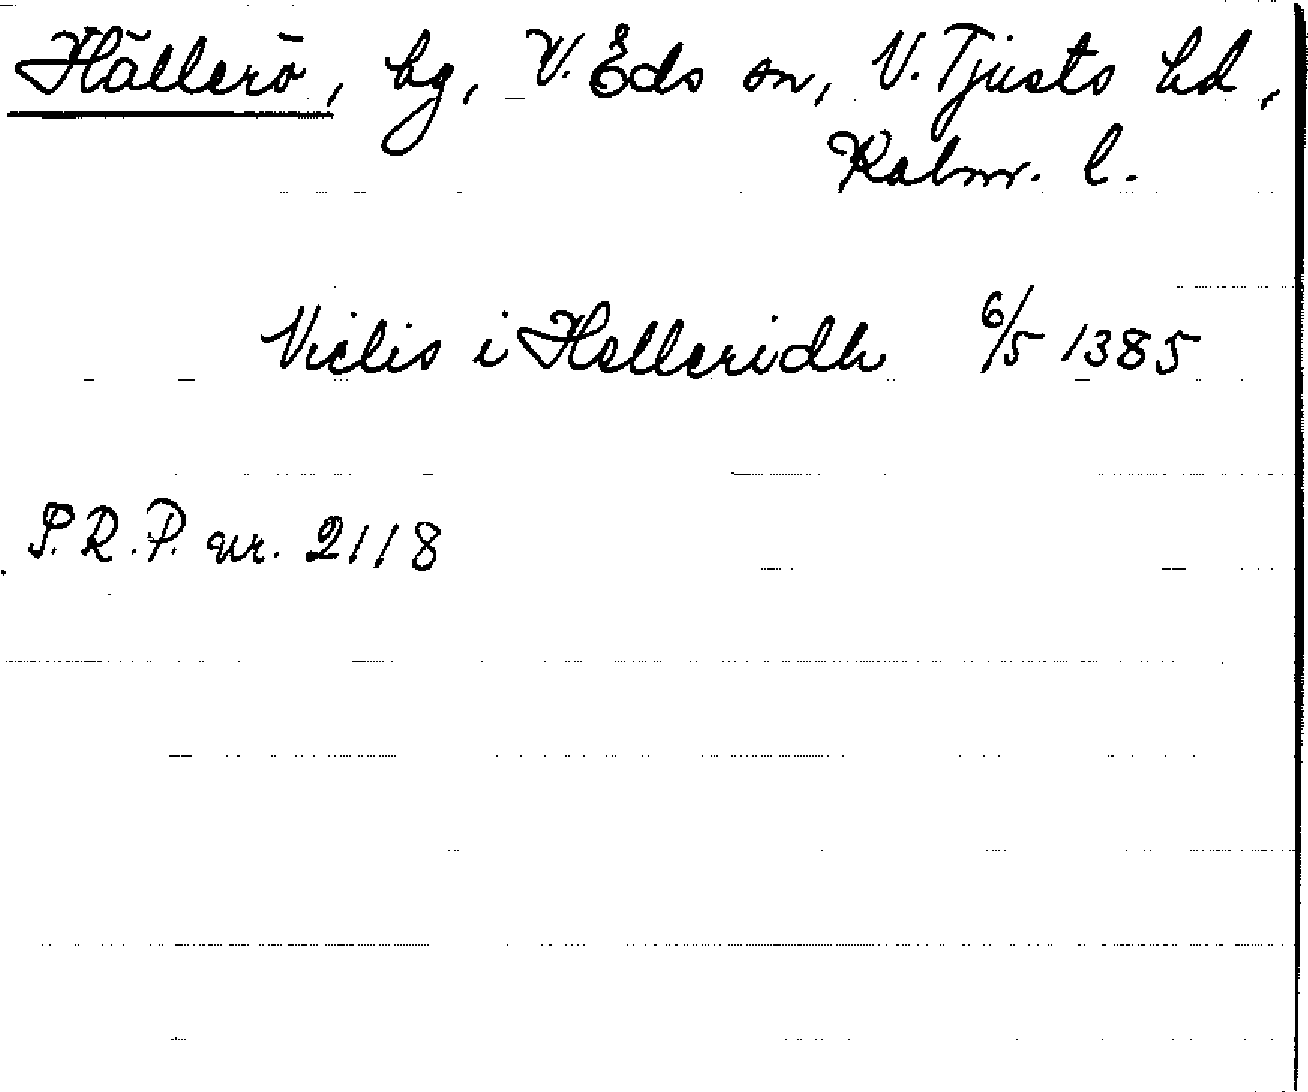 Hällerö, by, V. Eds sn, V. Tjusts hd,
Kalm. l.
Niclis i Helleridh 6/5 1385
S.R.P. nr. 2118